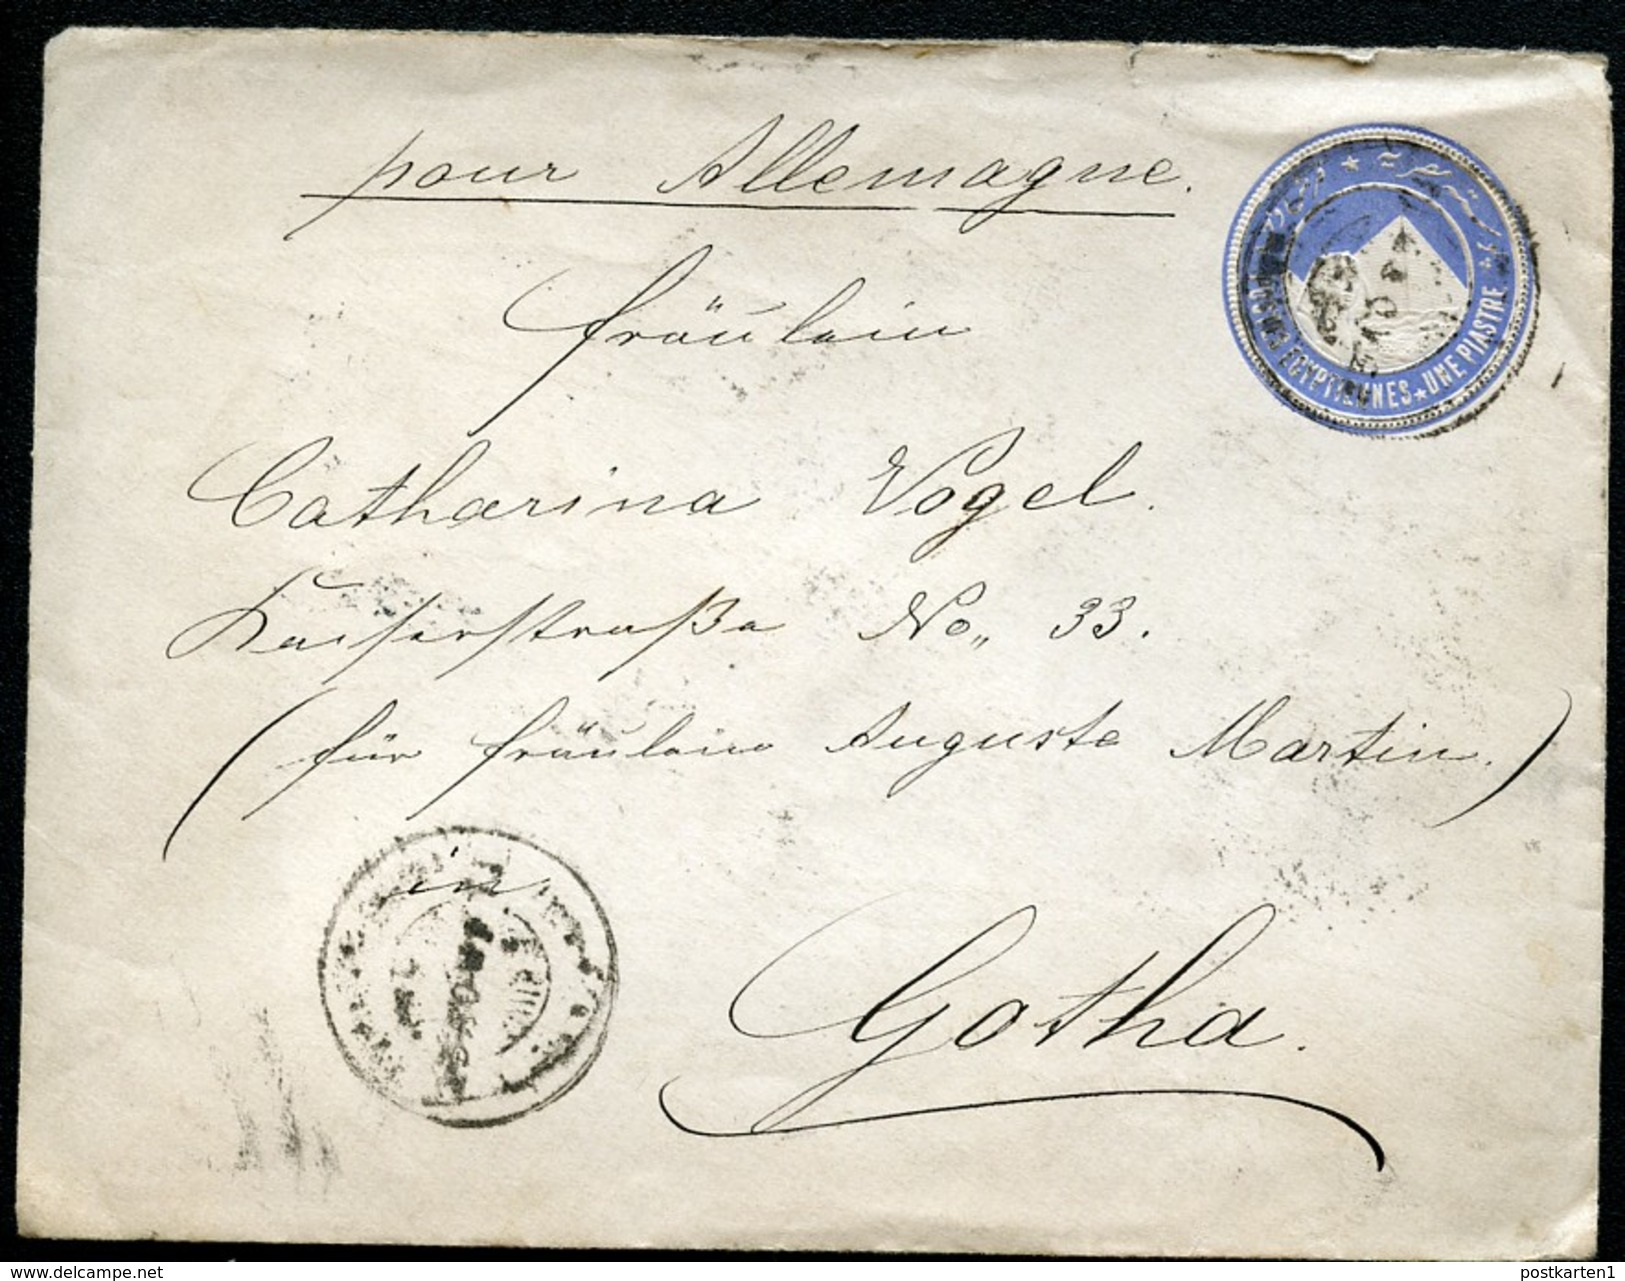 pour Allemagne.
POSTES EGYPTIENNES ★ UNE PIASTRE
fräulein
Catharina Vogel.
Kaiserstraße No„ 33.
(für fräulein Auguste Martin.)
in
Gotha.
delcampe.net
postkarten1